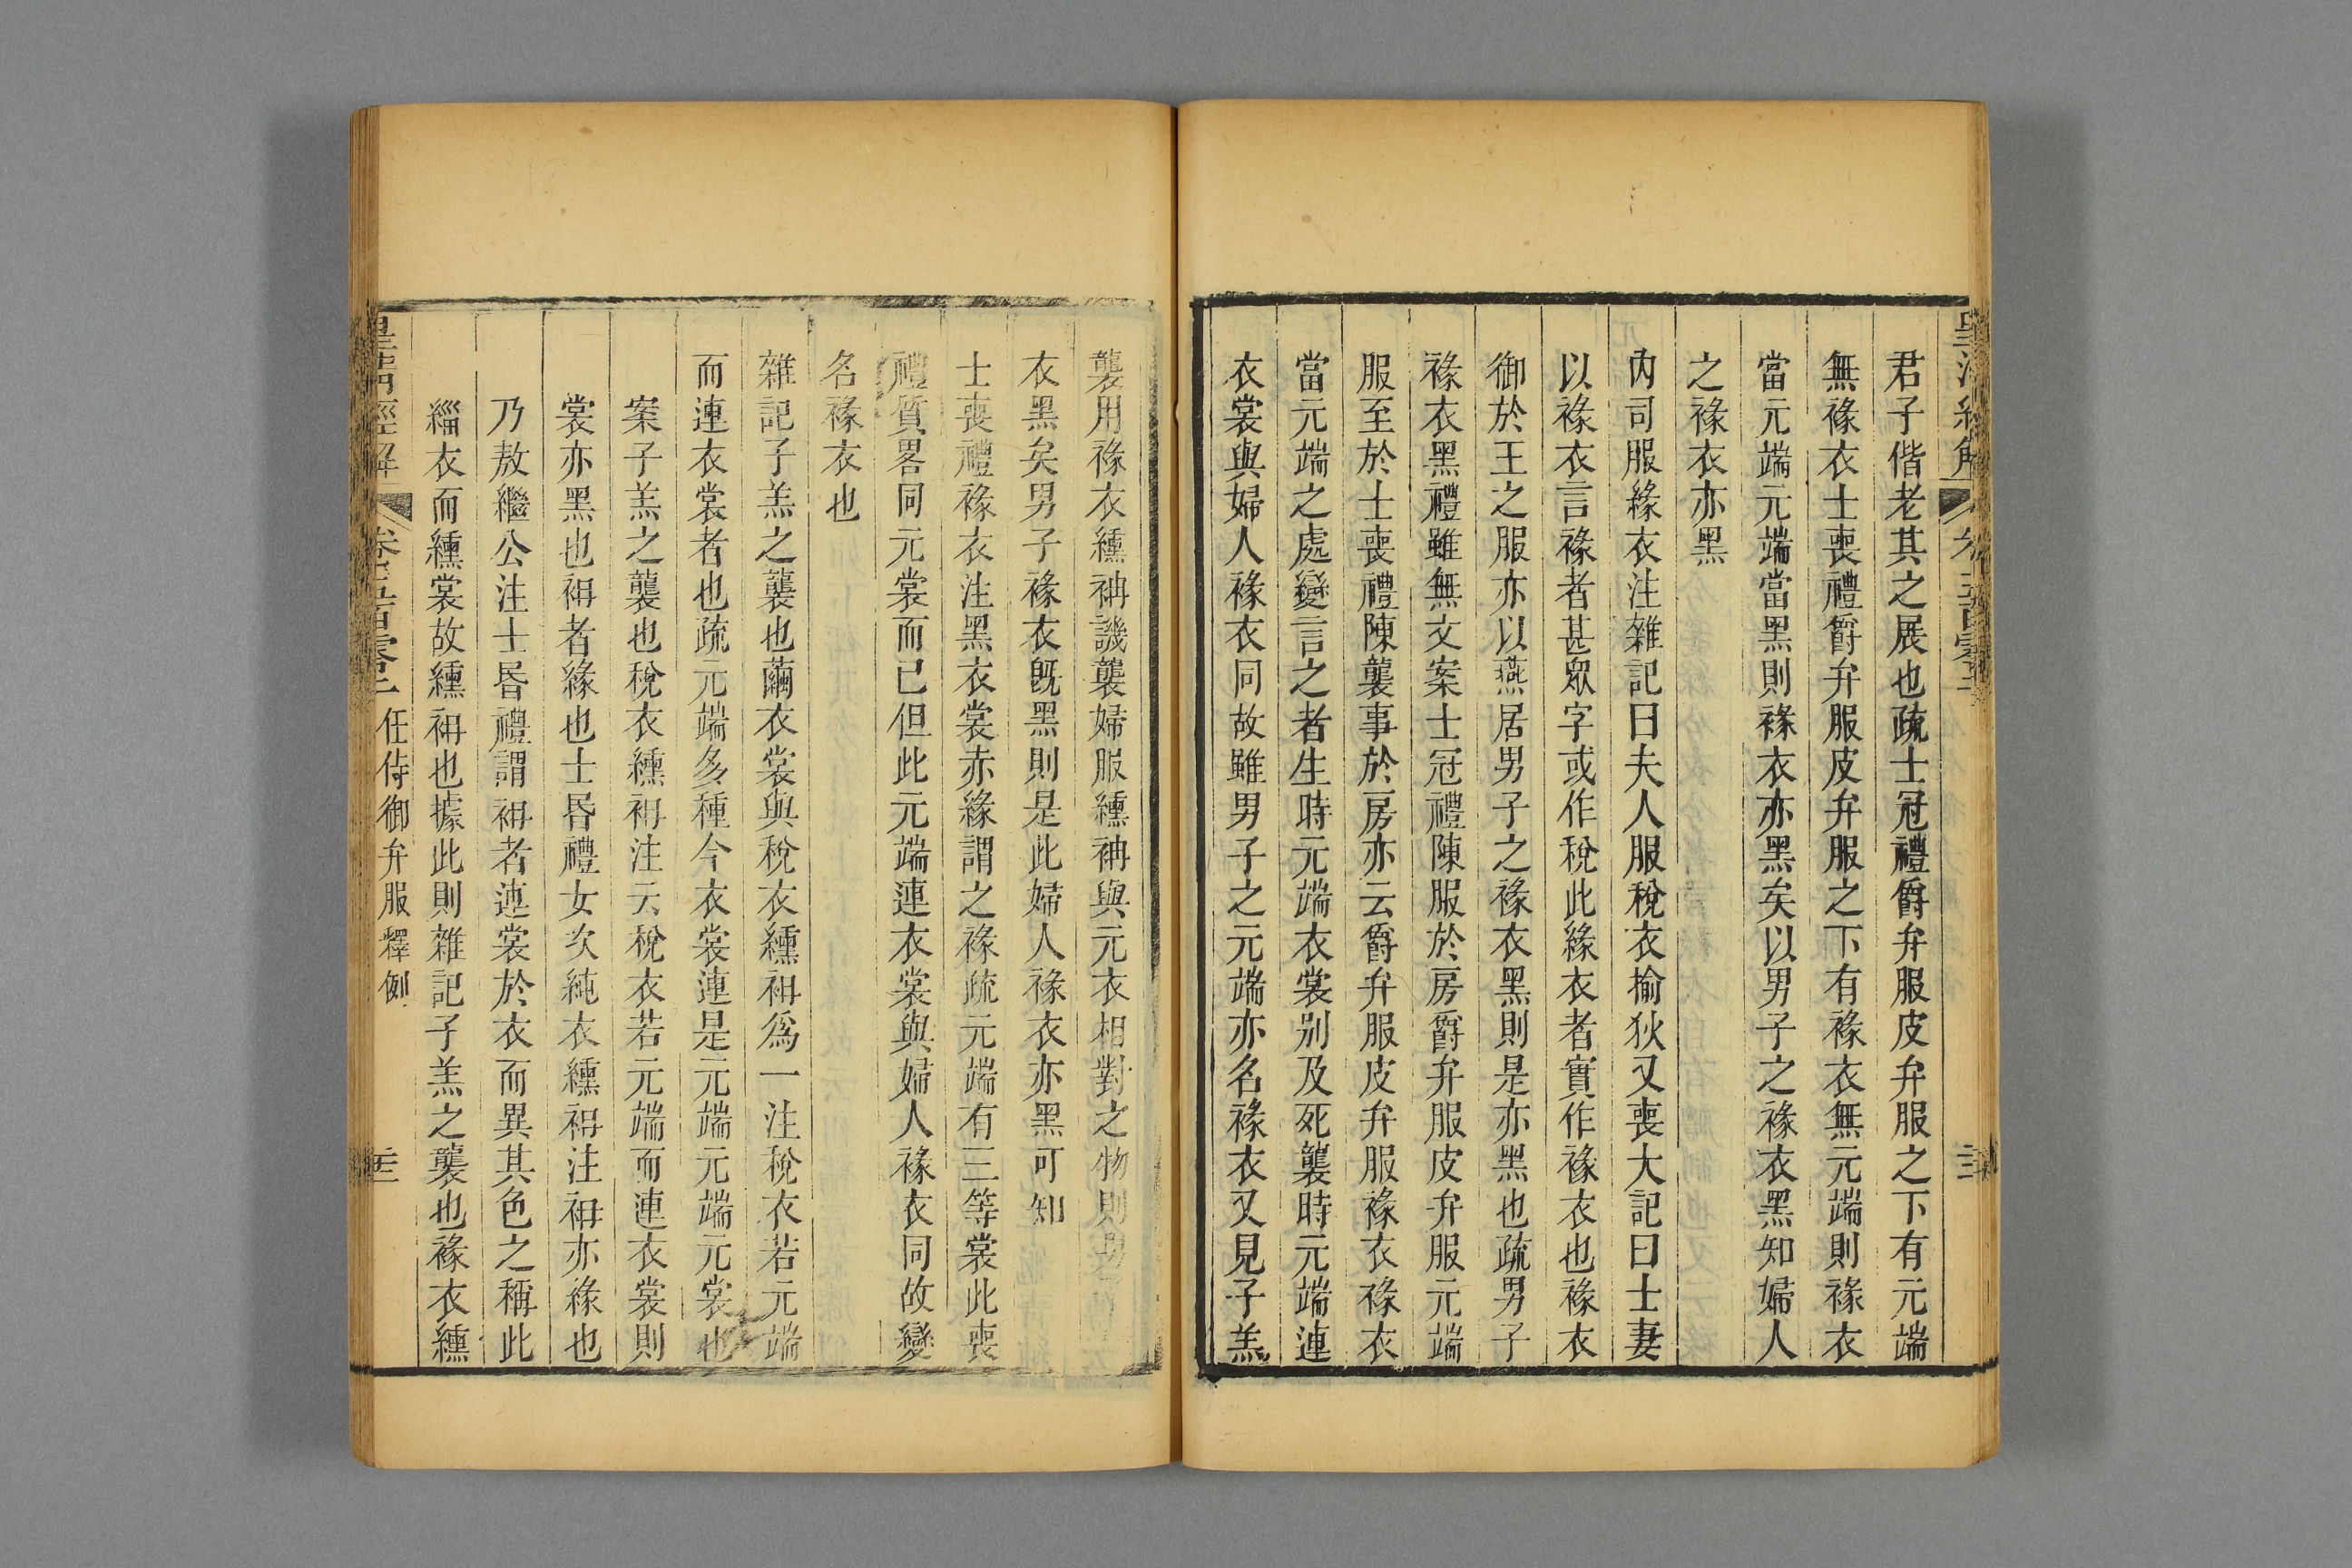 君子偕老其之展也疏士冠禮爵弁服皮弁服之下有元端
無褖衣士喪禮爵弁服皮弁服之下有褖衣無元端則褖衣
當元端元端當黑則褖衣亦黑矣以男子之褖衣黑知婦人
之褖衣亦黑
內司服緣衣注雜記曰夫人服稅衣揄狄又喪大記曰士妻
以褖衣言褖者甚眾字或作稅此緣衣者實作褖衣也褖衣
御於王之服亦以燕居男子之褖衣黑則是亦黑也疏男子
褖衣黑禮雖無文案士冠禮陳服於房爵弁服皮弁服元端
服至於士喪禮陳襲事於房亦云爵弁服皮弁服褖衣褖衣
當元端之處變言之者生時元端衣裳別及死襲時元端連
衣裳與婦人褖衣同故雖男子之元端亦名褖衣又見子羔
襲用褖衣纁袡譏襲婦服纁袡與元衣相對之物則男
衣黑矣男子褖衣既黑則是此婦人褖衣亦黑可知
士喪禮褖衣注黑衣裳赤緣謂之褖疏元端有三等裳此喪
禮質畧同元裳而已但此元端連衣裳與婦人褖衣同故變
名褖衣也
雜記子羔之襲也繭衣裳與稅衣纁袡爲一注稅衣若元端
而連衣裳者也疏元端多種今衣裳連是元端元端元裳也
案子羔之襲也稅衣纁袡注云稅衣若元端而連衣裳則
裳亦黑也袡者緣也士昏禮女次純衣纁袡注袡亦緣也
乃敖繼公注士昏禮謂袡者連裳於衣而異其色之稱此
緇衣而纁裳故纁袡也據此則雜記子羔之襲也褖衣纁
皇清經解 任侍御弁服釋例